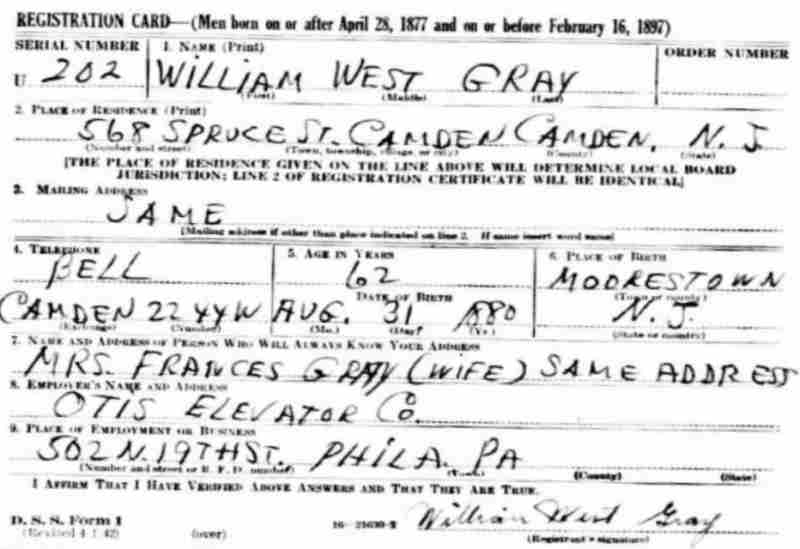 REGISTRATION CARD—(Men born on or after April 28, 1877 and on or before February 16, 1897)
SERIAL NUMBER 1. NAME (Print) ORDER NUMBER
U 202 WILLIAM WEST GRAY
(First) (Middle) (Last)
2. PLACE OF RESIDENCE (Print)
568 SPRUCE ST. CAMDEN CAMDEN, N. J.
(Number and street) (Town, township, village, or city) (County) (State)
[THE PLACE OF RESIDENCE GIVEN ON THE LINE ABOVE WILL DETERMINE LOCAL BOARD
JURISDICTION; LINE 2 OF REGISTRATION CERTIFICATE WILL BE IDENTICAL]
3. MAILING ADDRESS
SAME
[Mailing address if other than place indicated on line 2. If same insert word same]
4. TELEPHONE 5. AGE IN YEARS 6. PLACE OF BIRTH
BELL 62 MOORESTOWN
DATE OF BIRTH (Town or county)
CAMDEN 2244W AUG. 31 1880 N. J.
(Exchange) (Number) (Mo.) (Day) (Yr.) (State or country)
7. NAME AND ADDRESS OF PERSON WHO WILL ALWAYS KNOW YOUR ADDRESS
MRS. FRANCES GRAY (WIFE) SAME ADDRESS
8. EMPLOYER'S NAME AND ADDRESS
OTIS ELEVATOR CO.
9. PLACE OF EMPLOYMENT OR BUSINESS
502 N. 19TH ST. PHILA. PA
(Number and street or R. F. D. number) (Town) (County) (State)
I AFFIRM THAT I HAVE VERIFIED ABOVE ANSWERS AND THAT THEY ARE TRUE.
D. S. S. Form 1 William West Gray
(Revised 4-1-42) (over) 16—21630-2 (Registrant's signature)